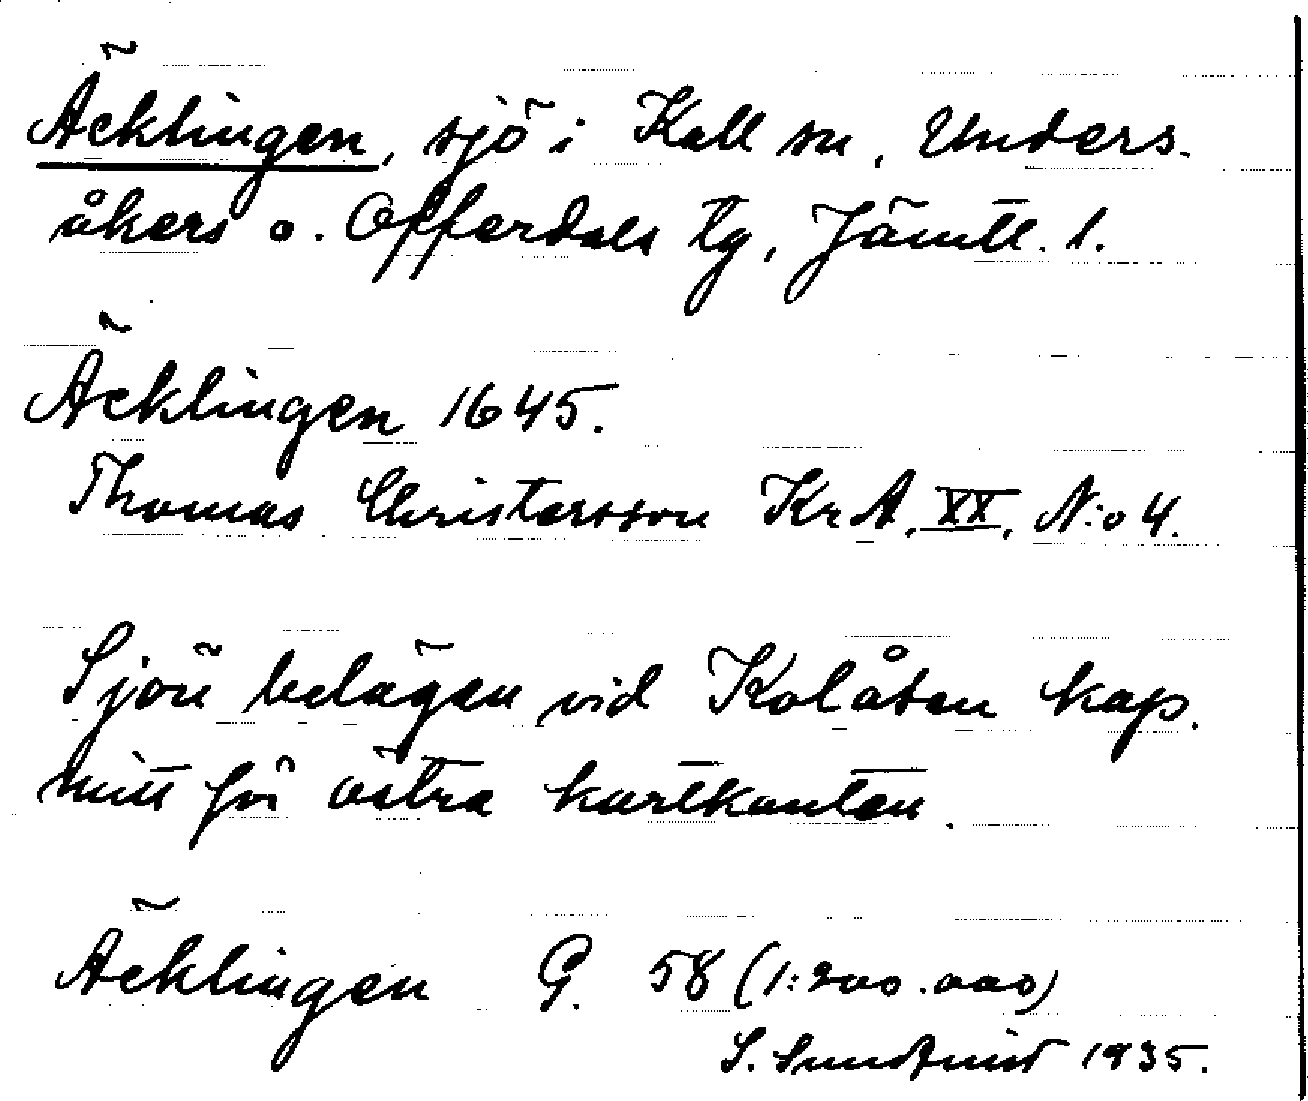 Äcklingen, sjö i Kall sn, Unders-
åkers o. Offerdals tg, Jämtl. l.
Äcklingen 1645.
Thomas Christersson Kr A, XX, N:o 4.
Sjön belägen vid Kolåsen kap.
mitt för östra kartkanten.
Äcklingen G. 58 (1:200.000)
S. Sundqvist 1935.